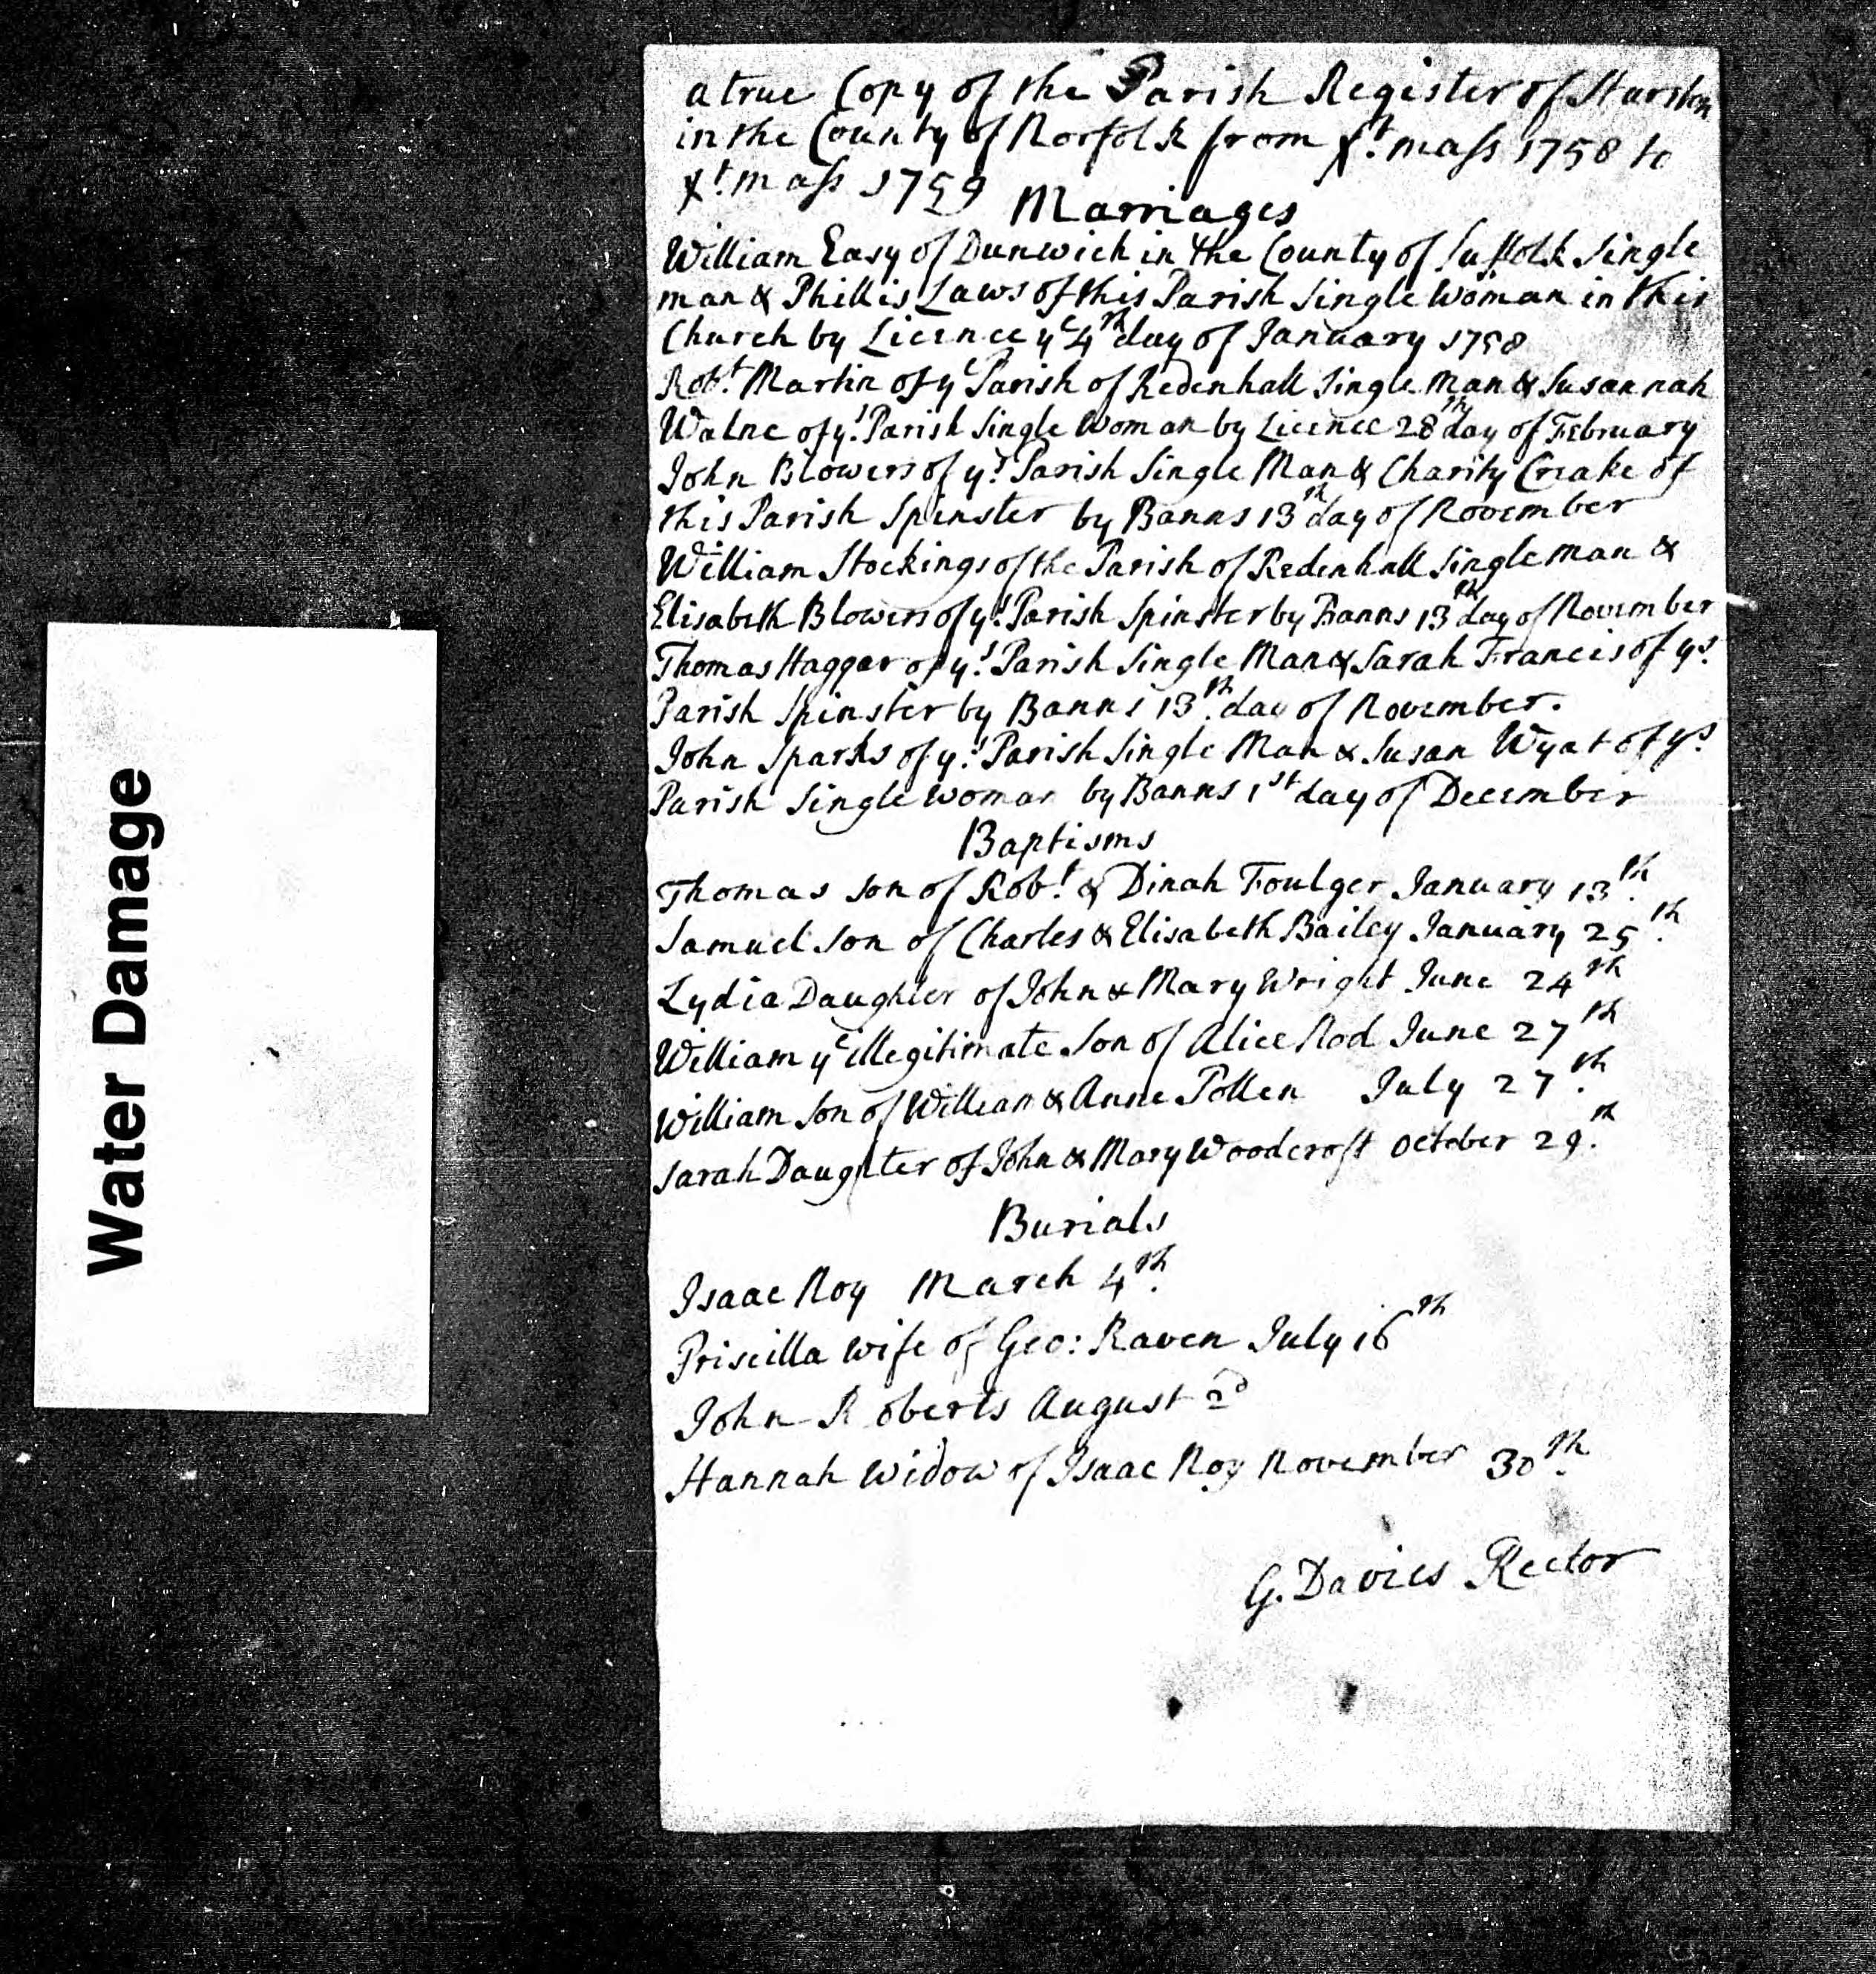 Water Damage
a true Copy of the Parish Register of Starston
in the County of Norfolk from Xt. mass 1758 to
Xt. mass 1759
Marriages
William Easy of Dunwich in the County of Suffolk Single
man & Phillis Laws of this Parish Single Woman in this
Church by Licence ye 4th day of January 1758
Robt. Martin of ye Parish of Redenhall Single Man & Susannah
Walne of ys. Parish Single Woman by Licence 28th day of February
John Blowers of ys. Parish Single Man & Charity Creake of
this Parish Spinster by Banns 13th day of November
William Stockings of the Parish of Redenhall Single man &
Elisabeth Blowers of ys. Parish Spinster by Banns 13th day of November
Thomas Haggar of ys. Parish Single Man & Sarah Francis of ys.
Parish Spinster by Banns 13th. day of November.
John Sparks of ys. Parish Single Man & Susan Wyat of ys.
Parish Single woman by Banns 1st day of December
Baptisms
Thomas Son of Robt. & Dinah Foulger January 13th.
Samuel Son of Charles & Elisabeth Bailey January 25th.
Lydia Daughter of John & Mary Wright June 24th
William ye illegitimate Son of Alice Rod June 27th
William Son of William & Anne Pollen July 27th.
Sarah Daughter of John & Mary Woodcroft October 29.th
Burials
Isaac Roy March 4th.
Priscilla wife of Geo: Raven July 16th
John Roberts August 2d
Hannah Widow of Isaac Roy November 30th.
G. Davies Rector